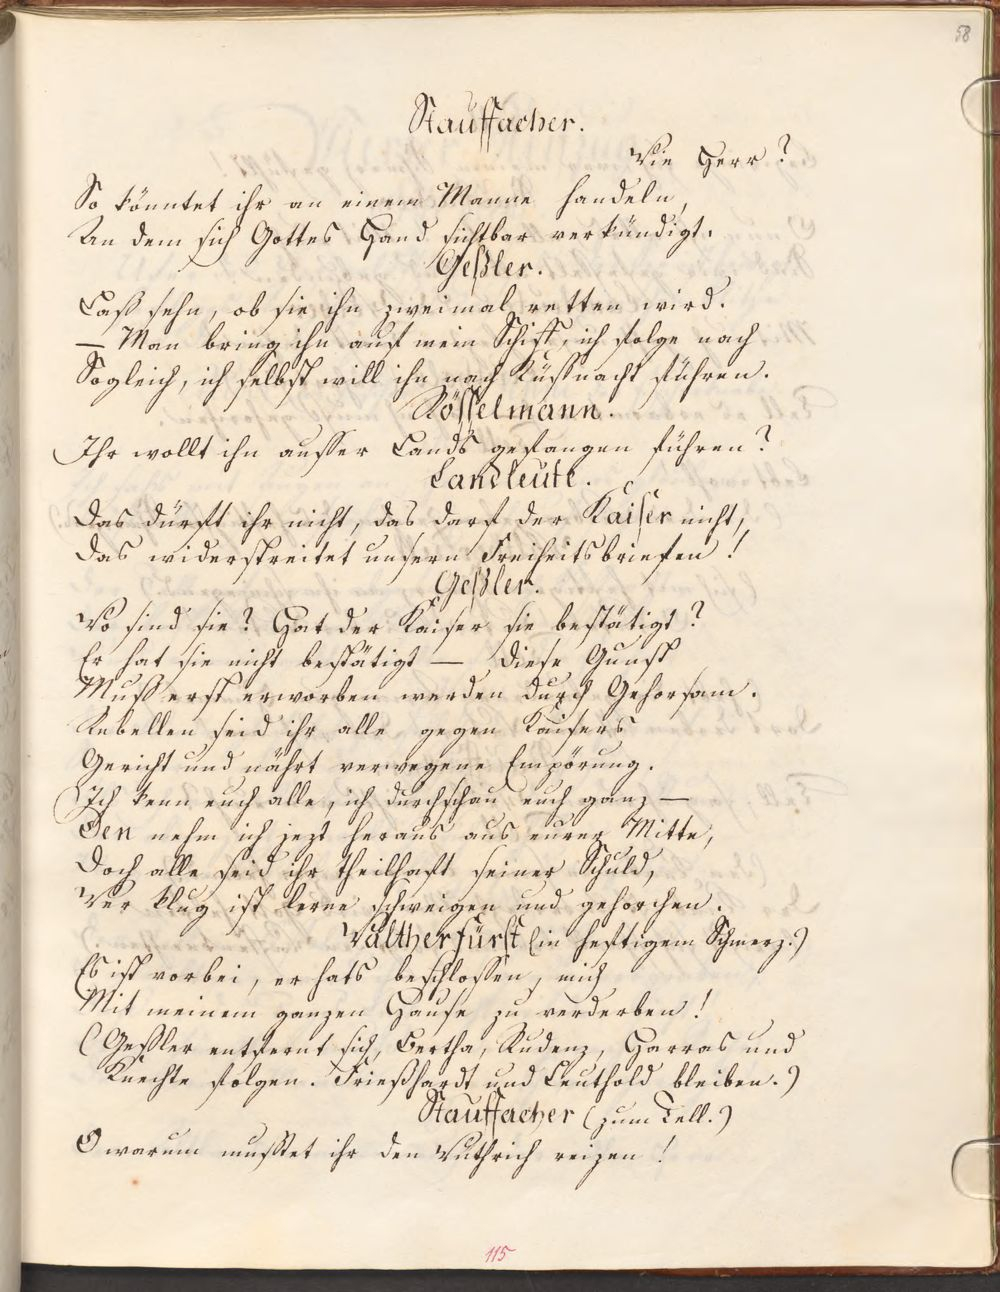 58
Stauffacher.
Wie Herr?
So könntet ihr an einem Manne handeln,
An dem sich Gottes Hand sichtbar verkündigt.
Geßler.
Laß sehn, ob sie ihn zweimal retten wird.
— Man bring ihn auf mein Schiff, ich folge nach
Sogleich, ich selbst will ihn nach Küßnacht führen.
Rösselmann.
Ihr wollt ihn ausser Lands gefangen führen?
Landleute.
Das dürft ihr nicht, das darf der Kaiser nicht,
Das widerstreitet unsern Freiheitsbriefen!
Geßler.
Wo sind sie? Hat der Kaiser sie bestätigt?
Er hat sie nicht bestätigt — Diese Gunst
Muß erst erworben werden durch Gehorsam.
Rebellen seid ihr alle gegen Kaisers
Gericht und nährt verwegene Empörung.
Ich kenn euch alle, ich durchschau euch ganz —
Den nehm ich jezt heraus aus eurer Mitte,
Doch alle seid ihr theilhaft seiner Schuld,
Wer klug ist lerne schweigen und gehorchen.
Walther Fürst (in heftigem Schmerz.)
Es ist vorbei, er hats beschlossen, mich
Mit meinem ganzen Hause zu verderben!
(Geßler entfernt sich, Bertha, Rudenz, Harras und
Knechte folgen. Frießhardt und Leuthold bleiben.)
Stauffacher (zum Tell.)
O warum musstet ihr den Wüthrich reizen!
115